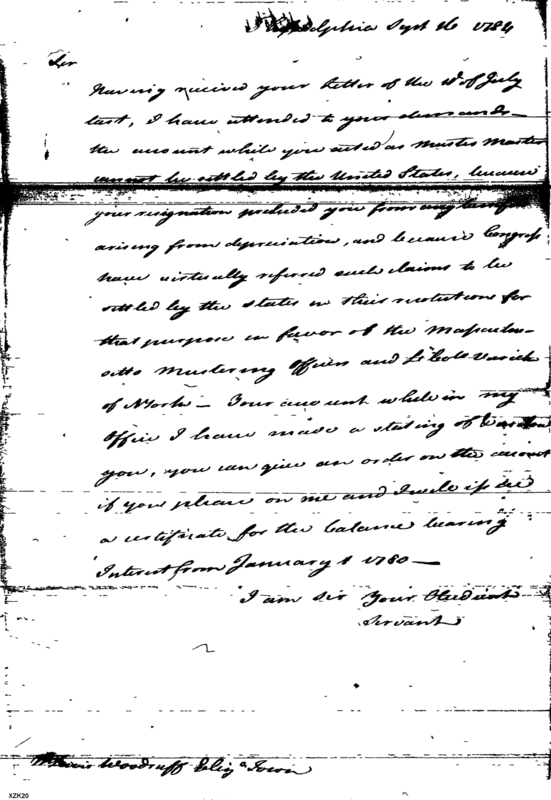 Philadelphia Sept 16 1784
Sir
Having received your Letter of the 10 of July
last, I have attended to your demands—
the account while you acted as Muster Master
cannot be settled by the United States, because
your resignation precluded you from any benefit
arising from depreciation, and because Congress
have virtually referred such claims to be
settled by the States in their resolutions for
that purpose in favor of the Massachu-
setts Mustering Officers and Lt Coll Varick
of N York — Your account while in my
Office I have made a stating of &
you, you can give an order on the account
if you please on me and I will issue
a certificate for the balance bearing
Interest from January 1 1780 —
I am Sir Your Obedient
Servant
Lewis Woodruff Eliza Town
XZK20